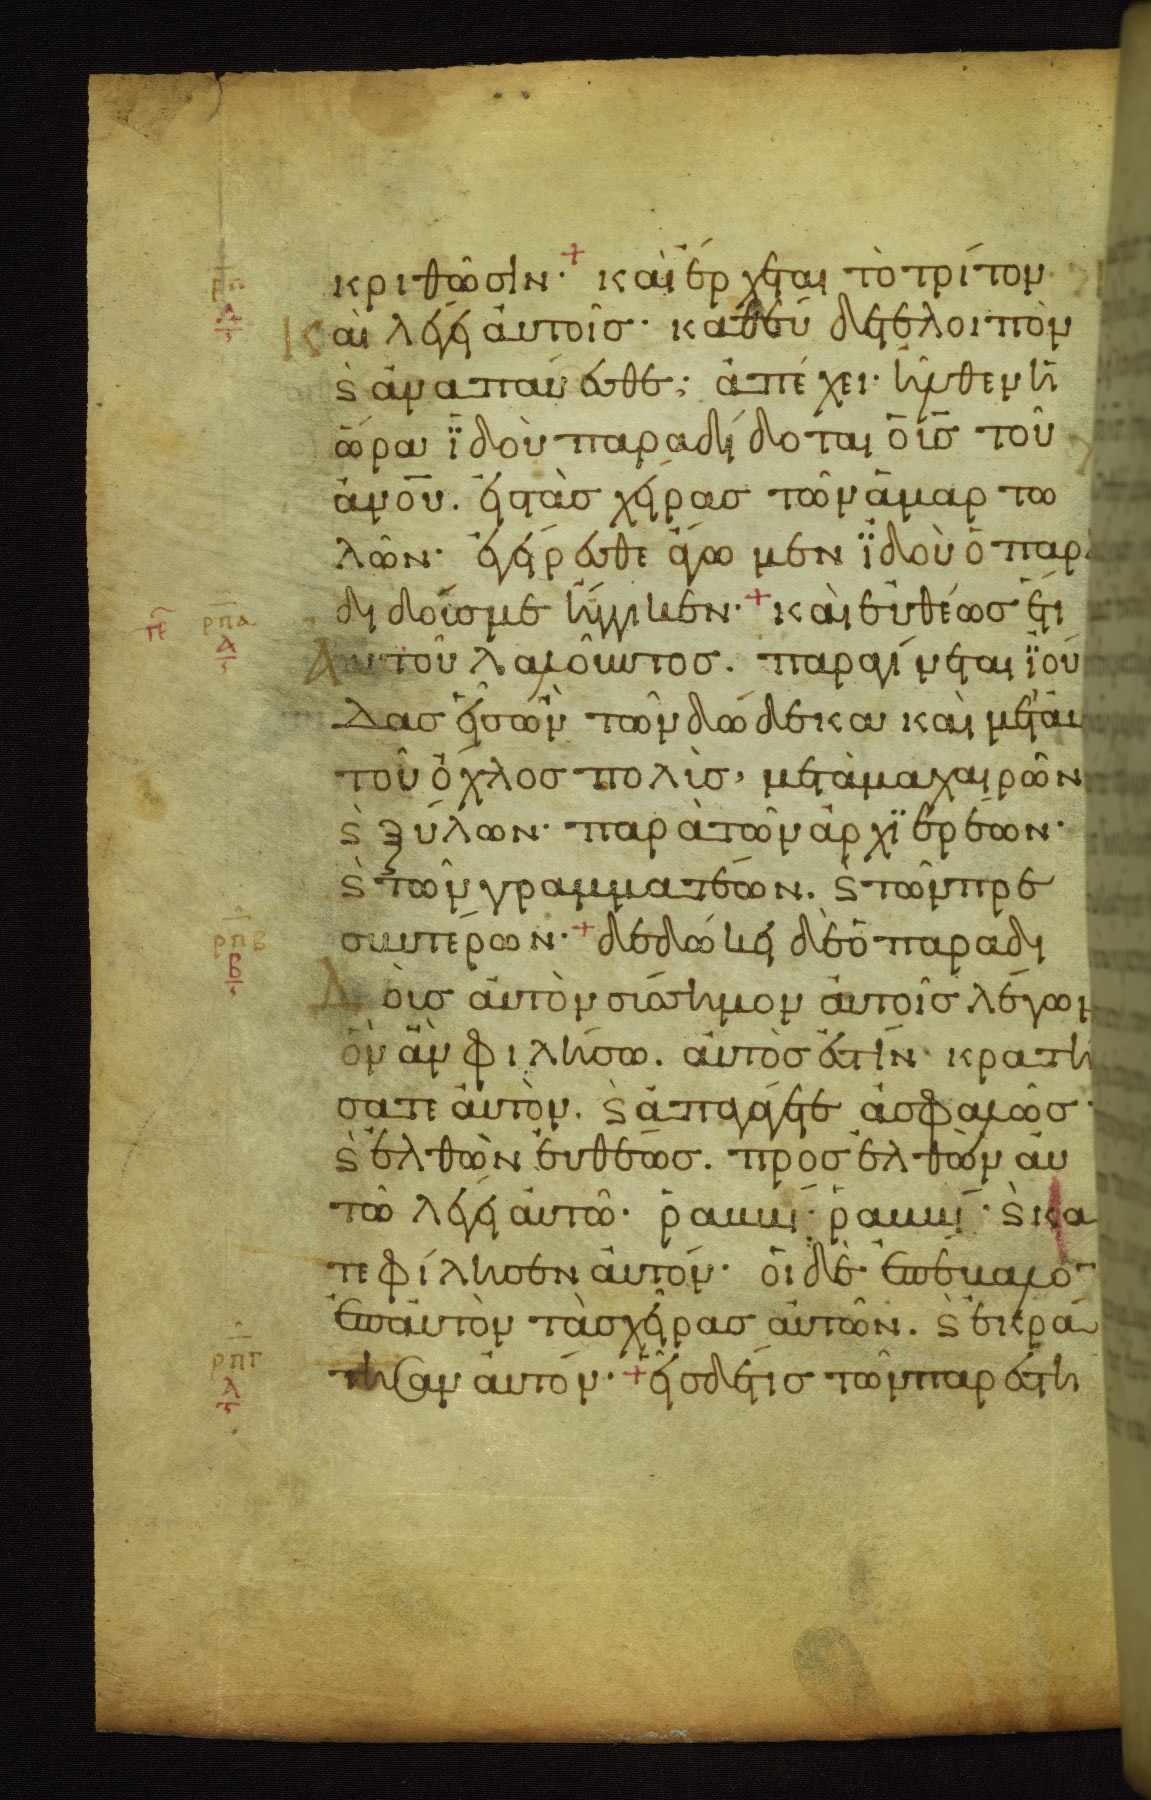 κριθῶσιν· + καὶ ἔρχεται τὸ τρίτον
ρπ
α
Και λέγει ἀυτοῖσ· καθεύδετε λοιπὸν
ς ἀναπαύεσθε; ἀπέχει· ἦλθεν ἡ
ὥρα ϊδοὺ παραδίδοται ὁ ισ τοῦ
ἀνου. εἰστὰσ χεῖρασ τῶν ἁμαρτω
λῶν· ἐγείρεσθε ἄγωμεν ϊδοὺ ὁ παρα
πε ρπα
α
διδούσμε ἤγγικεν· + καὶ ἐυθέωσ ἔτι
Αυτοῦ λαλοῦντοσ. παραγίνεται ϊού
δασ εἷσ ὢν τῶν δώδεκα καὶ μετ αὐ
τοῦ ὄχλοσ πολὺσ, μετὰ μαχαιρῶν
ς ξύλων· παρὰ τῶν ἀρχϊερέων·
ς τῶν γραμματέων. ς τῶν πρε
ρπβ
β
σβυτέρων· + δεδώκει δὲ ὁ παραδι
Δοὺσ ἀυτὸν σύσσημον ἀυτοῖσ λέγων
ὃν ἂν φιλήσω. ἀυτὸσ ἐστίν· κρατή
σατε ἀυτὸν. ς ἀπαγάγετε ἀσφαλῶσ·
ς ἐλθὼν ἐυθέωσ. προσελθὼν ἀυ
τῶ λέγει ἀυτῶ· ῥαββί· ῥαββί· ς κα
τεφίλησεν ἀυτόν· ὁι δὲ ἐπέβαλον
ἐπ ἀυτὸν τὰσ χεῖρασ ἀυτῶν. ς ἐκρά
ρπγ
α
τησαν ἀυτόν· + εἷσ δέ τισ τῶν παρεστη